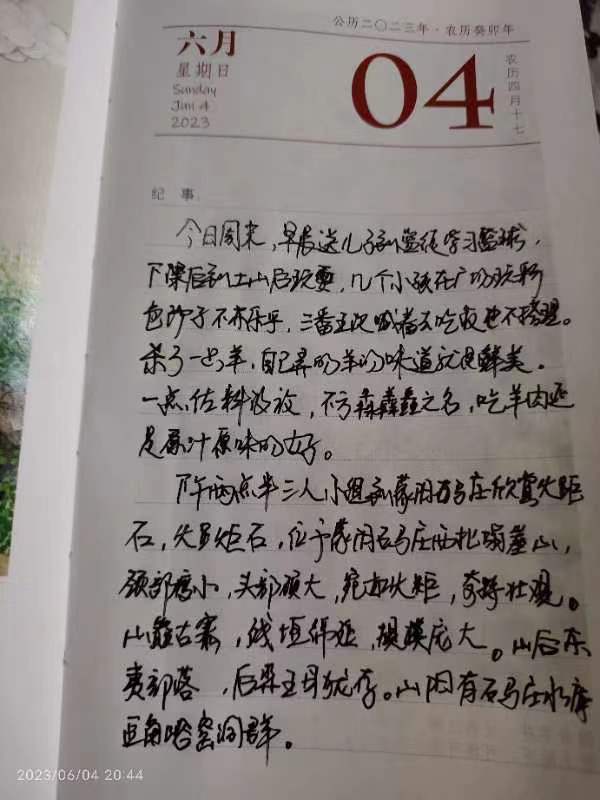 公历二〇二三年·农历癸卯年
六月
星期日
Sunday
Jun 4
2023
04
农历四月十七
纪 事
今日周末,早晨送儿子到堂线学习篮球,
下课后到土山后玩耍,几个小孩在广场玩彩
色沙子不亦乐乎,三番五次喊着去吃饭也不搭理。
杀了一只羊,自己弄的羊的味道就是鲜美。
一点佐料没放,不亏犇羴鱻之名,吃羊肉还
是原汁原味的好。
下午两点半三人小组到蒙阴石马庄欣赏火炬
石,火炬石,位于蒙阴石马庄西北山,
颈部瘦小,头部硕大,宛如火炬,奇特壮观。
山巅古寨,残垣绵延,规模庞大。山后东
夷部落,后王母犹存。山阴有石马庄水库
窑洞群。
2023/06/04 20:44